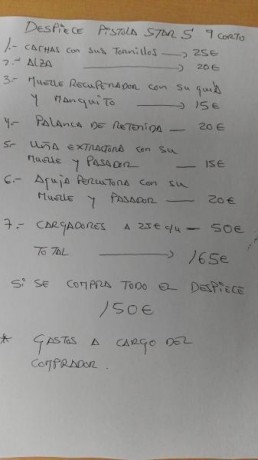 DESPIECE PISTOLA STAR S' 9 CORTO
1.- CACHAS CON SUS TORNILLOS — 25€
2.- ALZA — 20€
3.- MUELLE RECUPERADOR CON SU GUIA
Y MANGUITO — 15€
4.- PALANCA DE RETENIDA — 20€
5.- UÑA EXTRACTORA CON SU
MUELLE Y PASADOR — 15€
6.- AGUJA PERCUTORA CON SU
MUELLE Y PASADOR — 20€
7.- CARGADORES A 25€ c/u — 50€
TOTAL → 165€
SI SE COMPRA TODO EL DESPIECE
150€
* GASTOS A CARGO DEL
COMPRADOR.